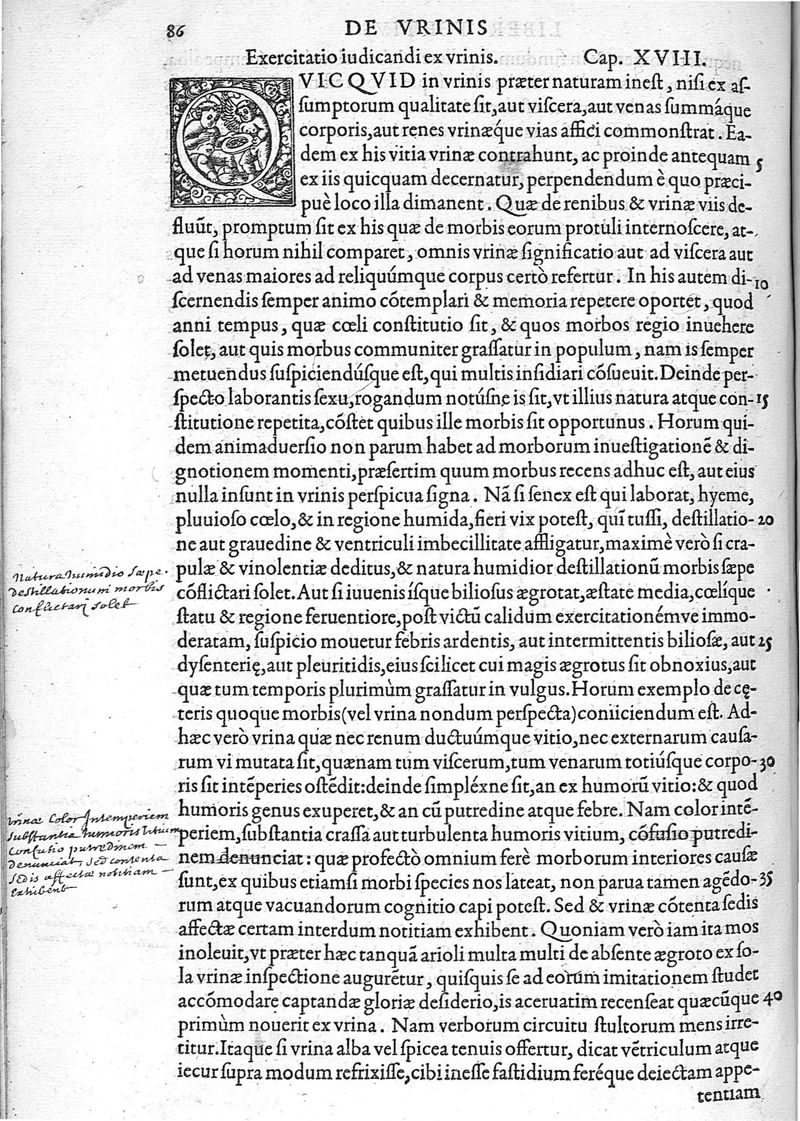 86
DE VRINIS
Exercitatio iudicandi ex vrinis. Cap. XVIII.
QVICQVID in vrinis præter naturam inest, nisi ex aſ-
ſumptorum qualitate ſit, aut viſcera, aut venas ſummáque
corporis, aut renes vrinæq́ue vias affici commonſtrat. Ea-
dem ex his vitia vrinæ contrahunt, ac proinde antequam 5
ex iis quicquam decernatur, perpendendum è quo præci-
puè loco illa dimanent. Quæ de renibus & vrinæ viis de-
fluũt, promptum ſit ex his quæ de morbis eorum protuli internoſcere, at-
que ſi horum nihil comparet, omnis vrinæ ſignificatio aut ad viſcera aut
ad venas maiores ad reliquúmque corpus certò refertur. In his autem di- 10
ſcernendis ſemper animo cõtemplari & memoria repetere oportet, quod
anni tempus, quæ cœli conſtitutio ſit, & quos morbos regio inuehere
ſolet, aut quis morbus communiter graſſatur in populum, nam is ſemper
metuendus ſuſpiciendúſque eſt, qui multis inſidiari cõſueuit. Deinde per-
ſpecto laborantis ſexu, rogandum notúſne is ſit, vt illius natura atque con- 15
ſtitutione repetita, cõſtet quibus ille morbis ſit opportunus. Horum qui-
dem animaduerſio non parum habet ad morborum inueſtigationẽ & di-
gnotionem momenti, præſertim quum morbus recens adhuc eſt, aut eius
nulla inſunt in vrinis perſpicua ſigna. Nã ſi ſenex eſt qui laborat, hyeme,
pluuioſo cœlo, & in regione humida, fieri vix poteſt, quĩ tuſſi, deſtillatio- 20
ne aut grauedine & ventriculi imbecillitate affligatur, maximè verò ſi cra-
pulæ & vinolentiæ deditus, & natura humidior deſtillationũ morbis ſæpe
cõflictari ſolet. Aut ſi iuuenis íſque bilioſus ægrotat, æſtate media, cœlíque
ſtatu & regione feruentiore, poſt victũ calidum exercitationémve immo-
deratam, ſuſpicio mouetur febris ardentis, aut intermittentis bilioſæ, aut 25
dyſenterię, aut pleuritidis, eius ſcilicet cui magis ægrotus ſit obnoxius, aut
quæ tum temporis plurimùm graſſatur in vulgus. Horum exemplo de cę-
teris quoque morbis (vel vrina nondum perſpecta) coniiciendum eſt. Ad-
hæc verò vrina quæ nec renum ductuúmque vitio, nec externarum cauſa-
rum vi mutata ſit, quænam tum viſcerum, tum venarum totiúſque corpo- 30
ris ſit intẽperies oſtẽdit: deinde ſimpléxne ſit, an ex humorũ vitio: & quod
humoris genus exuperet, & an cũ putredine atque febre. Nam color intẽ-
periem, ſubſtantia craſſa aut turbulenta humoris vitium, cõfuſio putredi-
nem denunciat: quæ profectò omnium ferè morborum interiores cauſæ
ſunt, ex quibus etiamſi morbi ſpecies nos lateat, non parua tamen agẽdo- 35
rum atque vacuandorum cognitio capi poteſt. Sed & vrinæ cõtenta ſedis
affectæ certam interdum notitiam exhibent. Quoniam verò iam ita mos
inoleuit, vt præter hæc tanquã arioli multa multi de abſente ægroto ex ſo-
la vrinæ inſpectione augurẽtur, quiſquis ſe ad eorum imitationem ſtudet
accõmodare captandæ gloriæ deſiderio, is aceruatim recenſeat quæcũque 40
primùm nouerit ex vrina. Nam verborum circuitu ſtultorum mens irre-
titur. Itaque ſi vrina alba vel ſpicea tenuis offertur, dicat vẽtriculum atque
iecur ſupra modum refrixiſſe, cibi ineſſe faſtidium feréque deiectam appe-
tentiam
Natura humidio sæpe
destillationum morbis
conflictarj solet
Vrinæ Color Intemperiem
substantia humoris vitium
Confutio putredinem
denunciat, sed contenta
sedis affectæ notitiam
exhibent